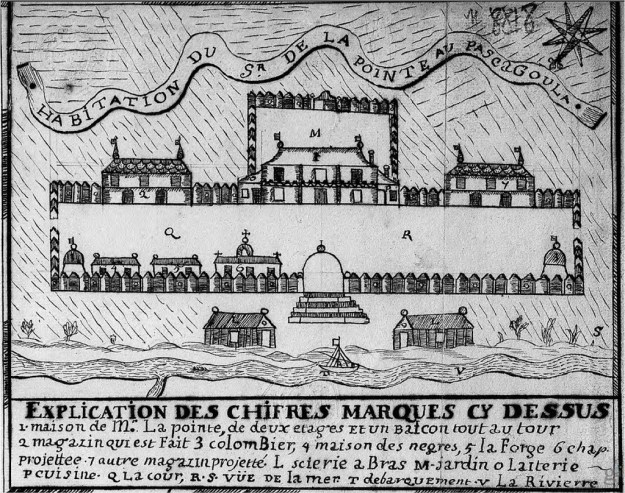 8818
HABITATION DU Sr. DE LA POINTE AU PASCAGOULA.
M
1
2
7
Q
R
S
V
EXPLICATION DES CHIFRES MARQUES CY DESSUS
1. maison de Mr. La pointe, de deux etages ET un Balcon tout au tour
2 magazin qui est Fait 3 colomBier, 4 maison des negres, 5 la Forge 6 chap.
projettée. 7 autre magazin projetté. L scierie a Bras M. Jardin O Laiterie
P cuisine. Q La cour, R. S. VÜE DE la mer T debarquement. V La Rivierre